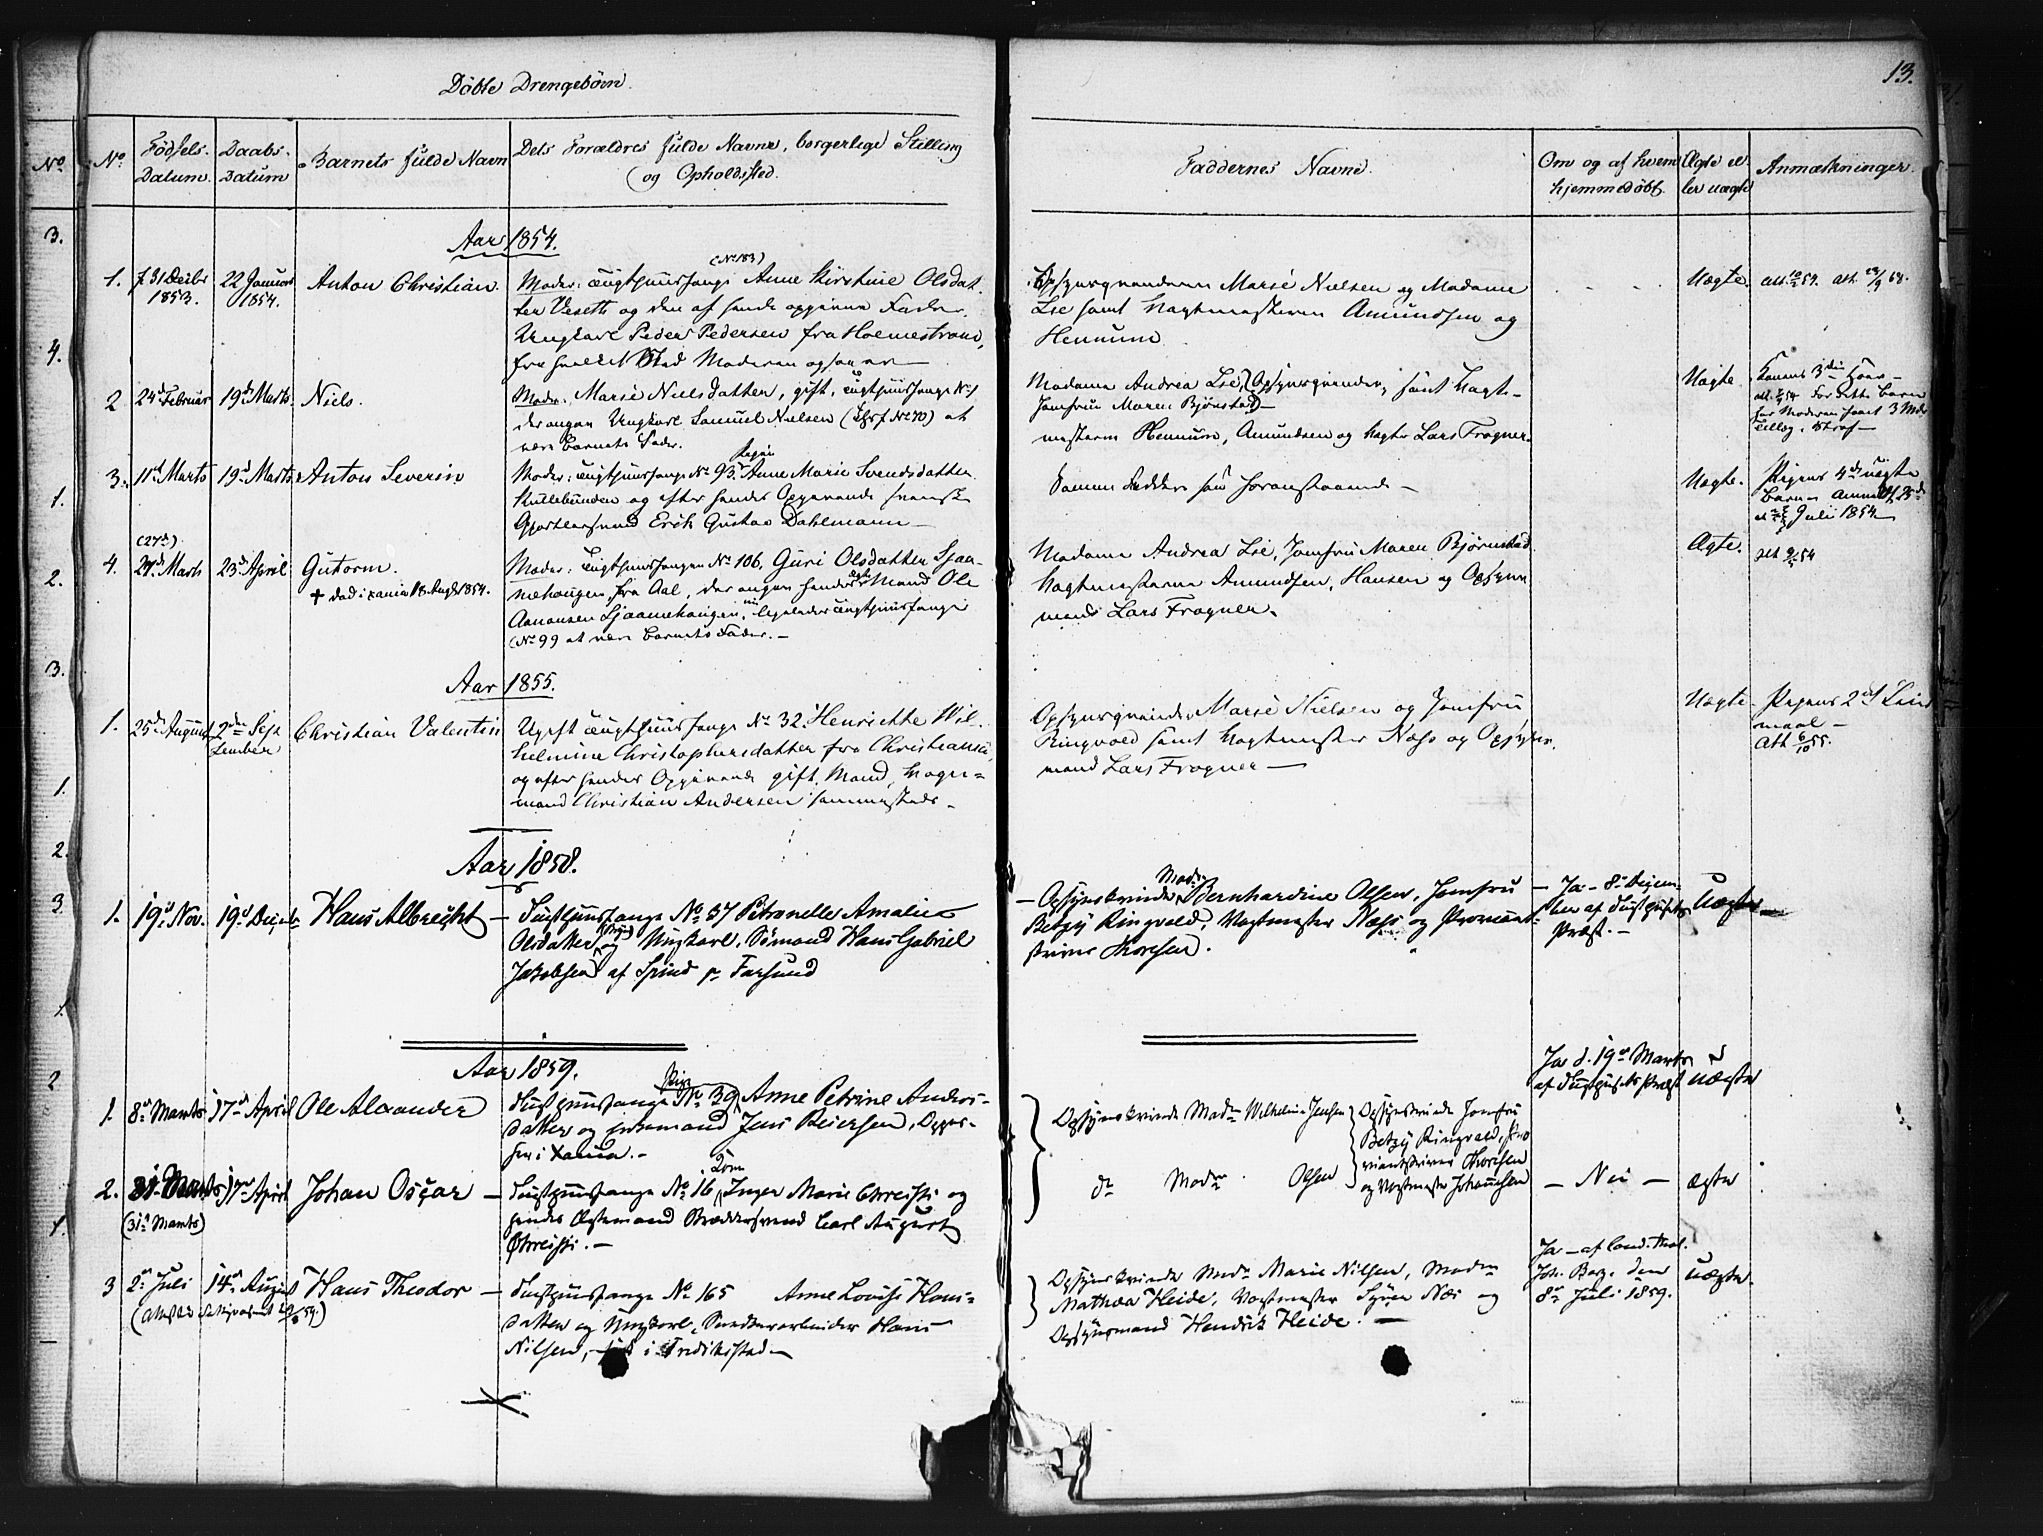 Døbte Drengebørn.
13.
No.
No.
Fødsels-
Datum.
Daabs-
Datum
Barnets fulde Navn
Dets Forældres fulde Navne, borgerlige Stilling
og Opholdssted.
Faddernes Navne.
Om og af hvem
hjemmedøbt.
Ægte el-
ler uægte
Anmærkninger.
Aar 1854.
1.
f 31 Decbr
1853.
22 Januar
1854.
Anton Christian.
(No 183)
Moder: Tugthuusfange Anne Kirstine Olsdat-
ter Veseth og den af hende opgivne Fader,
Ungkarl Peder Pedersen fra Holmestrand,
fra hvilket Sted Moderen ogsaa er
Opsynsqvinderne Marie Nielsen og Madame
Lie samt Vagtmesterne Amundsen og
Hennum
Uægte.
2
24d Februar
19d Marts.
Niels.
Moder: Marie Nielsdatter, gift, Tugthuusfange No 1
der angav Ungkarl Samuel Nielsen No 70) at
være Barnets Fader.
Madame Andrea Lie, Opsynsqvinde, samt Vagt-
Jomfru Maren Bjørnstad
mesterne Hennum, Amundsen og Vagtr Lars Frogner.
Uægte
Konens 3die
for dette Barn
for Moderen samt 3 Mdr
Tillæg i Straf
3.
11d Marts
19d Marts
Anton Severin
Pigen
Moder: Tugthuusfange No 93 Anne Marie Svendsdatter
Kullebunden og efter hendes Opgivende svensk
Gjørtlersvend Erik Gustav Dahlmann
Samme Faddere som foranstaaende
Uægte.
Pigens 4de uægte
Barn
Juli 1854
4.
(27d)
24d Marts
23d April
Gutorm.
✝ død i Xania 18 Augst 1854.
Moder: Tugthuusfange No 106, Guri Olsdatter Sjaa-
nehaugen, fra Aal, der angav hendes Mand Ole
Aanonsen Sjaanehaugen, ligeledes Tugthuusfange
(No 99 at være Barnets Fader.
Madame Andrea Lie, Jomfru Maren Bjørnstad
Vagtmesterne Amundsen, Hansen og Opsyns-
mand Lars Frogner.
Ægte.
Aar 1855.
1.
25d August
2den Sep-
tember
Christian Valentin
Ugift Tugthuusfange No 32 Henriette Wil-
helmine Christophersdatter fra Christiania,
og efter hendes Opgivende gift Mand, Vogn-
mand Christian Andersen sammesteds.
Opsynsqvinde Marie Nielsen og Jomfru
Ringvold samt Vagtmester Næss og Opsyns-
mand Lars Frogner
Uægte
Pigens 2det Leier-
maal
Att. 6/10 55.
Aar 1858.
1.
19d Nov.
19d Decbr
Hans Albrecht
Tugthuusfange No 37 Petronelle Amalie
Olsdatter og Ungkarl, Sømand Hans Gabriel
Jakobsen af Spind pr Farsund
Opsynskvinde Madm Bernhardine Olsen, Jomfru
Betzy Ringvold, Vagtmester Næss og Proviant-
skriver Thoresen.
Ja - 8de Decem-
ber af Tugthusets
Præst.
uægte
Aar 1859.
1.
8de Marts
17de April
Ole Alexander
Pige
Tugthuusfange No 39 Anne Petrine Anders-
datter og Jens Reiersen,
i Xania.
Opsynskvinde Madm Wilhelmine Jensen
Opsynskvinde Jomfru
Betzy Ringvold, Pro-
viantskriver Thoresen
og Vagtmester Johannesen
Ja d. 19de Marts
af Tugthusets Præst
uægte
2.
(31te Marts)
17de April
Johan Oscar
Kone
Tugthuusfange No 16, Inger Marie og
hendes Ægtemand Carl August
do Madm Olsen
Nei
ægte
3
2de Juli
14de August
Hans Theodor
Tugthuusfange No 165 Anne Lovise Hans-
datter og Ungkarl, Hans
Nilsen, i Fredrikstad
Opsynskvinde Madm Marie Nilsen, Madm
Mathea Heide, Vagtmester Næs og
Opsynsmand Hendrik Heide.
Ja - af Cand. theol.
Joh. den
8de Juli 1859.
uægte.